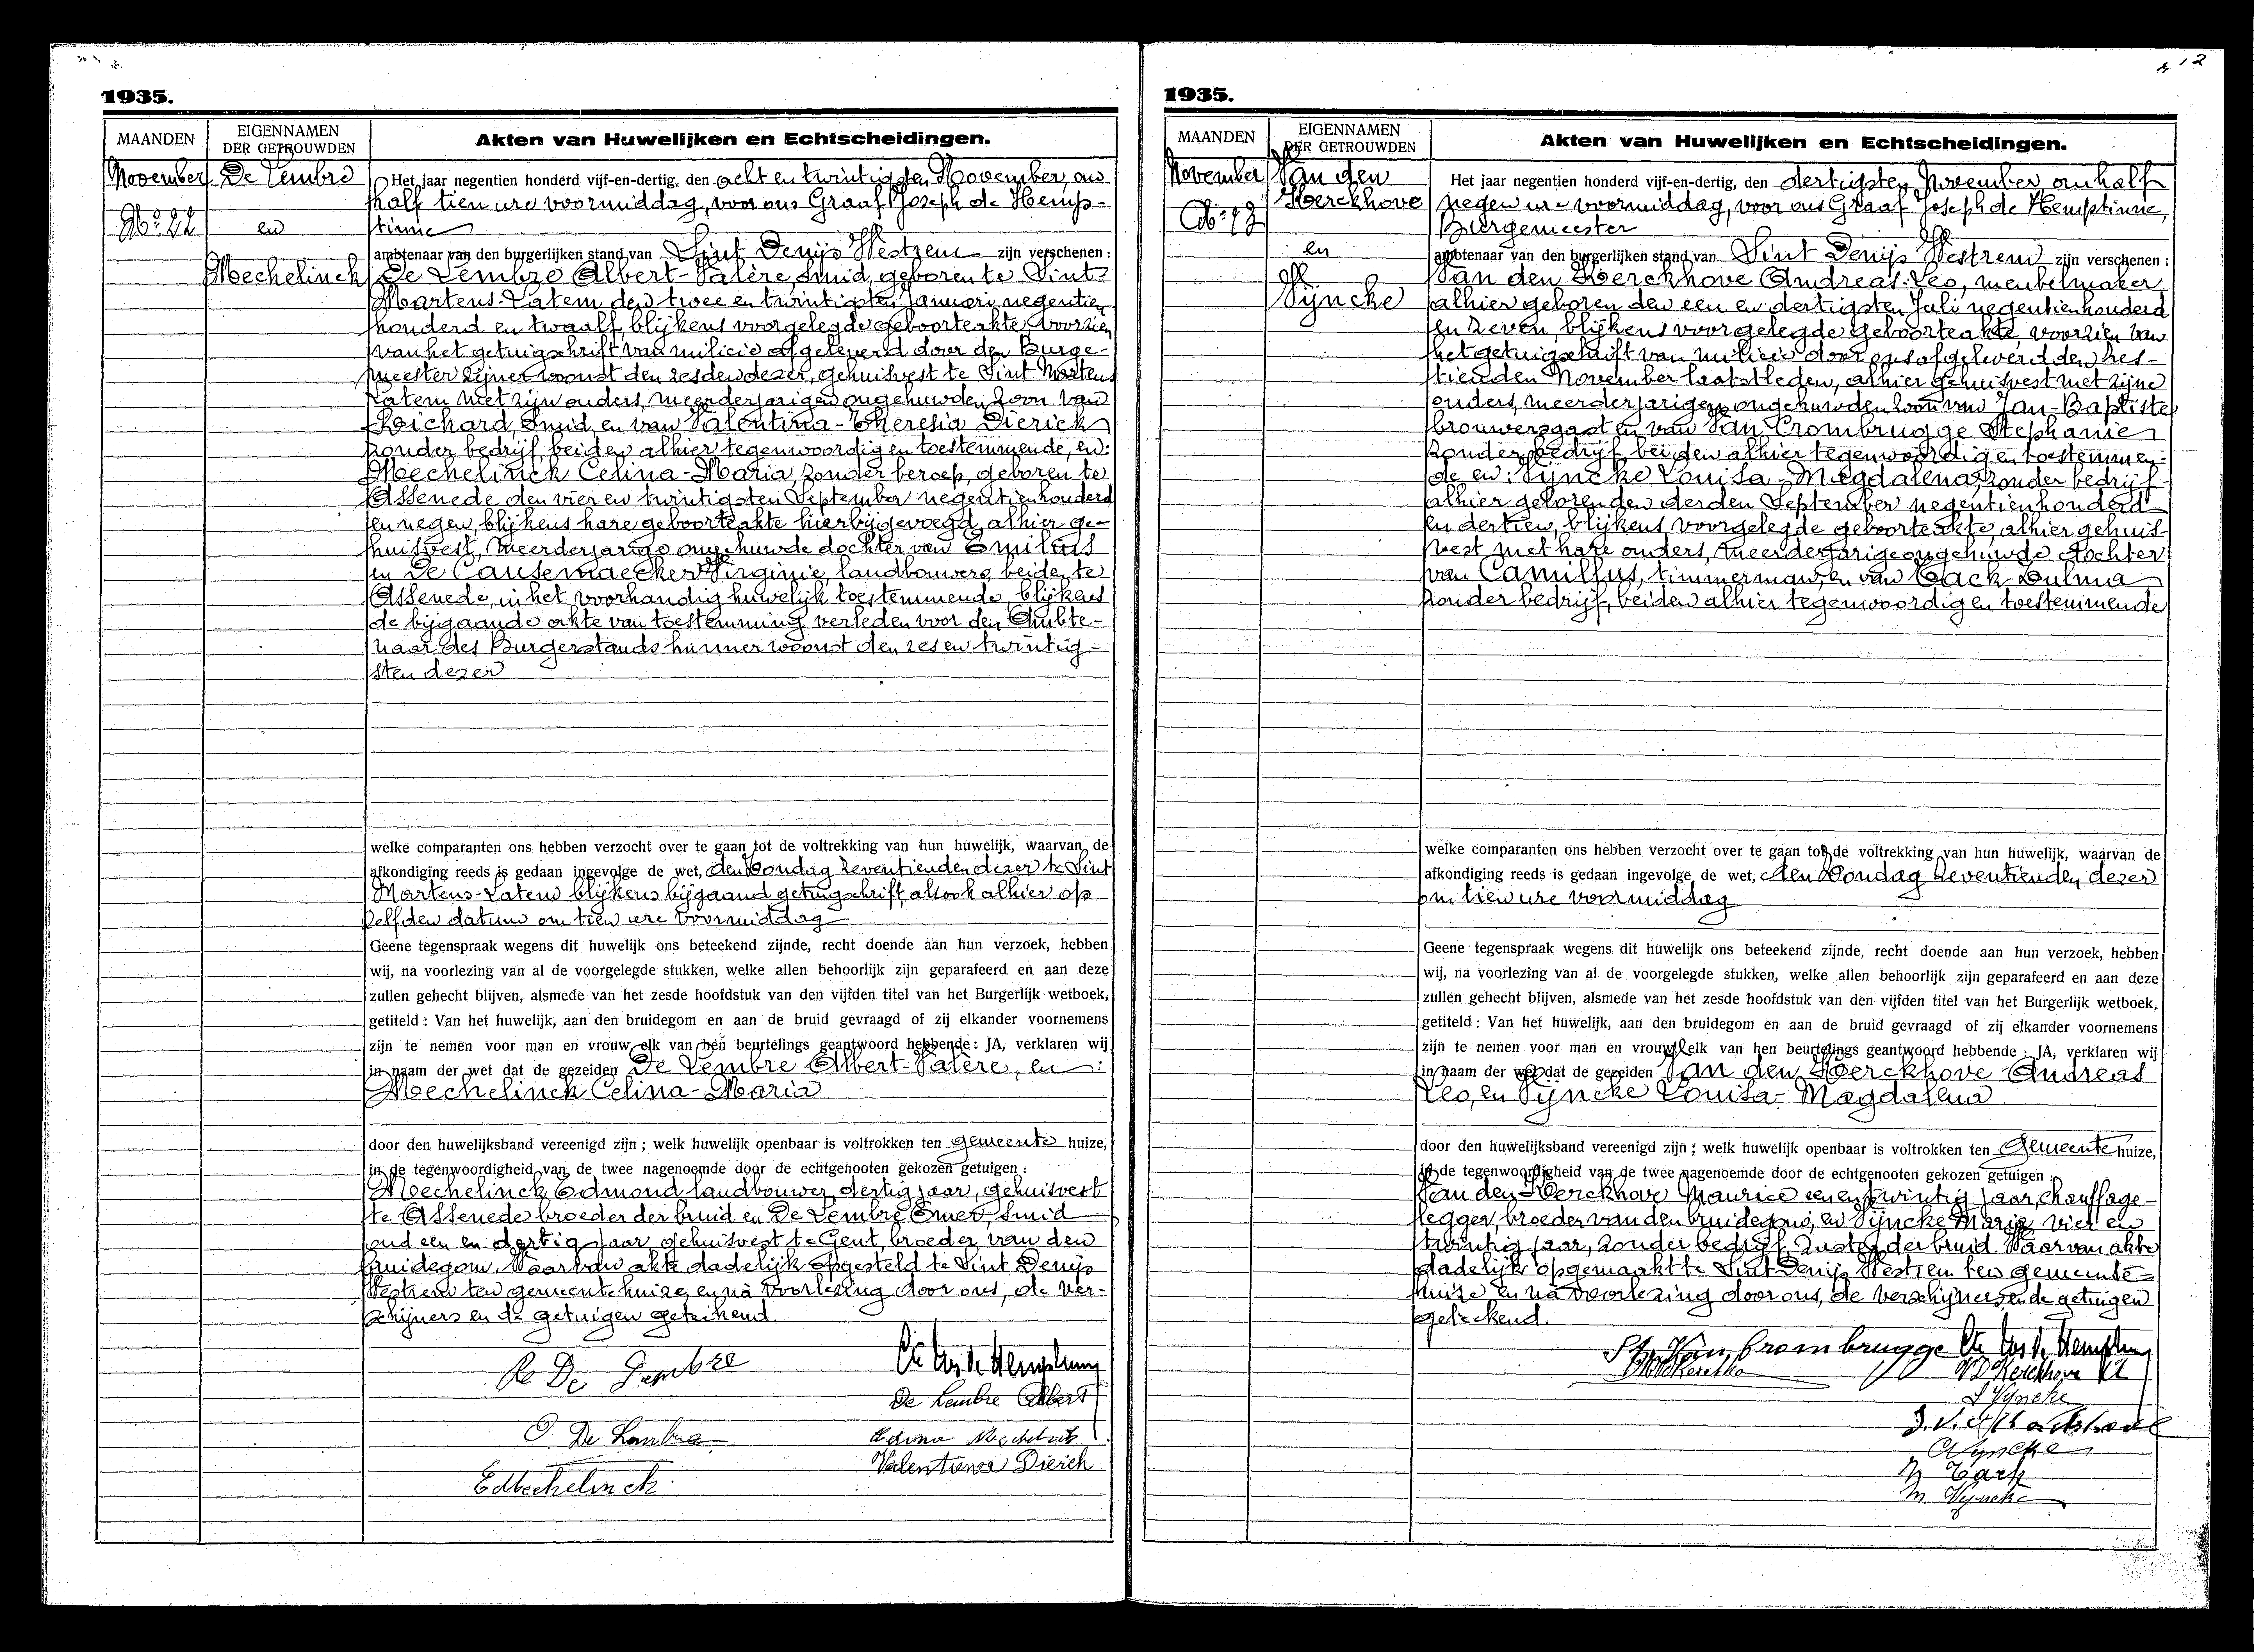 12
1935.
MAANDEN
EIGENNAMEN
DER GETROUWDEN
Akten van Huwelijken en Echtscheidingen.
November
De Lembre
No: 22
en
Mechelinck
Het jaar negentien honderd vijf-en-dertig, den acht en twintigsten November, om
half tien ure voormiddag, voor ons Graaf Joseph de Hemp-
tinne
ambtenaar van den burgerlijken stand van Sint Denijs Westrem zijn verschenen :
De Lembre Albert-Valère, smid, geboren te Sint
Martens-Latem den twee en twintigsten Januari negentien
honderd en twaalf, blijkens voorgelegde geboorteakte, voorzien
van het getuigschrift van milicie afgeleverd door den Burge-
meester zijner woonst den zesden dezer, gehuisvest te Sint Martens
Latem met zijn ouders, meerderjarigen ongehuwden zoon van
Richard, smid, en van Valentina-Theresia Dierick
zonder bedrijf, beiden alhier tegenwoordig en toestemmende, en:
Mechelinck Celina-Maria, zonder beroep, geboren te
Assenede den vier en twintigsten September negentienhonderd
en negen, blijkens hare geboorteakte hierbijgevoegd, alhier ge-
huisvest, meerderjarige ongehuwde dochter van Emilius
en De Causemaecker Virginie, landbouwers, beiden te
Assenede, in het voorhandig huwelijk toestemmende, blijkens
de bijgaande akte van toestemming verleden voor den Ambte-
naar des Burgerstands hunner woonst den zes en twintig-
sten dezer
welke comparanten ons hebben verzocht over te gaan tot de voltrekking van hun huwelijk, waarvan de
afkondiging reeds is gedaan ingevolge de wet, den Zondag zeventienden dezer te Sint
Martens-Latem blijkens bijgaand getuigschrift, alsook alhier op
zelfden datum om tien ure voormiddag
Geene tegenspraak wegens dit huwelijk ons beteekend zijnde, recht doende aan hun verzoek, hebben
wij, na voorlezing van al de voorgelegde stukken, welke allen behoorlijk zijn geparafeerd en aan deze
zullen gehecht blijven, alsmede van het zesde hoofdstuk van den vijfden titel van het Burgerlijk wetboek,
getiteld : Van het huwelijk, aan den bruidegom en aan de bruid gevraagd of zij elkander voornemens
zijn te nemen voor man en vrouw, elk van hen beurtelings geantwoord hebbende : JA, verklaren wij
in naam der wet dat de gezeiden De Lembre Albert-Valère, en :
Mechelinck Celina-Maria
door den huwelijksband vereenigd zijn ; welk huwelijk openbaar is voltrokken ten gemeente huize,
in de tegenwoordigheid van de twee nagenoemde door de echtgenooten gekozen getuigen :
Mechelinck Edmond, landbouwer, dertig jaar, gehuisvest
te Assenede broeder der bruid en De Lembre Omer, smid
oud een en dertig jaar, gehuisvest te Gent, broeder van den
bruidegom. Waarvan akte dadelijk opgesteld te Sint Denijs
Westrem ten gemeentehuize, en na voorlezing door ons, de ver-
schijners en de getuigen geteekend.
De Lembre
De Lembre Albert
O De Lembre
Valentiena Dierick
E Mechelinck
1935.
MAANDEN
EIGENNAMEN
DER GETROUWDEN
Akten van Huwelijken en Echtscheidingen.
November
Van den
Kerckhove
en
Vyncke
Het jaar negentien honderd vijf-en-dertig, den dertigsten November, om half
negen ure voormiddag, voor ons Graaf Joseph de Hemptinne,
Burgemeester
ambtenaar van den burgerlijken stand van Sint Denijs Westrem zijn verschenen :
Van den Kerckhove Andreas-Leo, meubelmaker
alhier geboren den een en dertigsten Juli negentienhonderd
en zeven, blijkens voorgelegde geboorteakte, voorzien van
het getuigschrift van milicie door ons afgeleverd den zes-
tienden November laatstleden, alhier gehuisvest met zijne
ouders, meerderjarigen ongehuwden zoon van Jan-Baptiste
brouwersgast en van Van Crombrugge Stephanie
zonder bedrijf, beiden alhier tegenwoordig en toestemmen-
de en: Vyncke Louisa-Magdalena, zonder bedrijf
alhier geboren den derden September negentienhonderd
en dertien, blijkens voorgelegde geboorteakte, alhier gehuis-
vest met hare ouders, meerderjarige ongehuwde dochter
van Camillus, timmerman, en van Tack Zulma
zonder bedrijf, beiden alhier tegenwoordig en toestemmende
welke comparanten ons hebben verzocht over te gaan tot de voltrekking van hun huwelijk, waarvan de
afkondiging reeds is gedaan ingevolge de wet, den Zondag zeventienden dezer
om tien ure voormiddag
Geene tegenspraak wegens dit huwelijk ons beteekend zijnde, recht doende aan hun verzoek, hebben
wij, na voorlezing van al de voorgelegde stukken, welke allen behoorlijk zijn geparafeerd en aan deze
zullen gehecht blijven, alsmede van het zesde hoofdstuk van den vijfden titel van het Burgerlijk wetboek,
getiteld : Van het huwelijk, aan den bruidegom en aan de bruid gevraagd of zij elkander voornemens
zijn te nemen voor man en vrouw, elk van hen beurtelings geantwoord hebbende : JA, verklaren wij
in naam der wet dat de gezeiden Van den Kerckhove Andreas
Leo, en Vyncke Louisa-Magdalena
door den huwelijksband vereenigd zijn ; welk huwelijk openbaar is voltrokken ten Gemeente huize,
in de tegenwoordigheid van de twee nagenoemde door de echtgenooten gekozen getuigen :
Van den Kerckhove Maurice een en twintig jaar, chauffage-
legger, broeder van den bruidegom, en Vyncke Maria, vier en
twintig jaar, zonder bedrijf, zuster der bruid. Waarvan akte
dadelijk opgemaakt te Sint Denijs Westrem ten gemeente-
huize en na voorlezing door ons, de verschijners en de getuigen
geteekend.
St. Van Crombrugge
L Vyncke
C Vyncke
Z Tack
M Vyncke